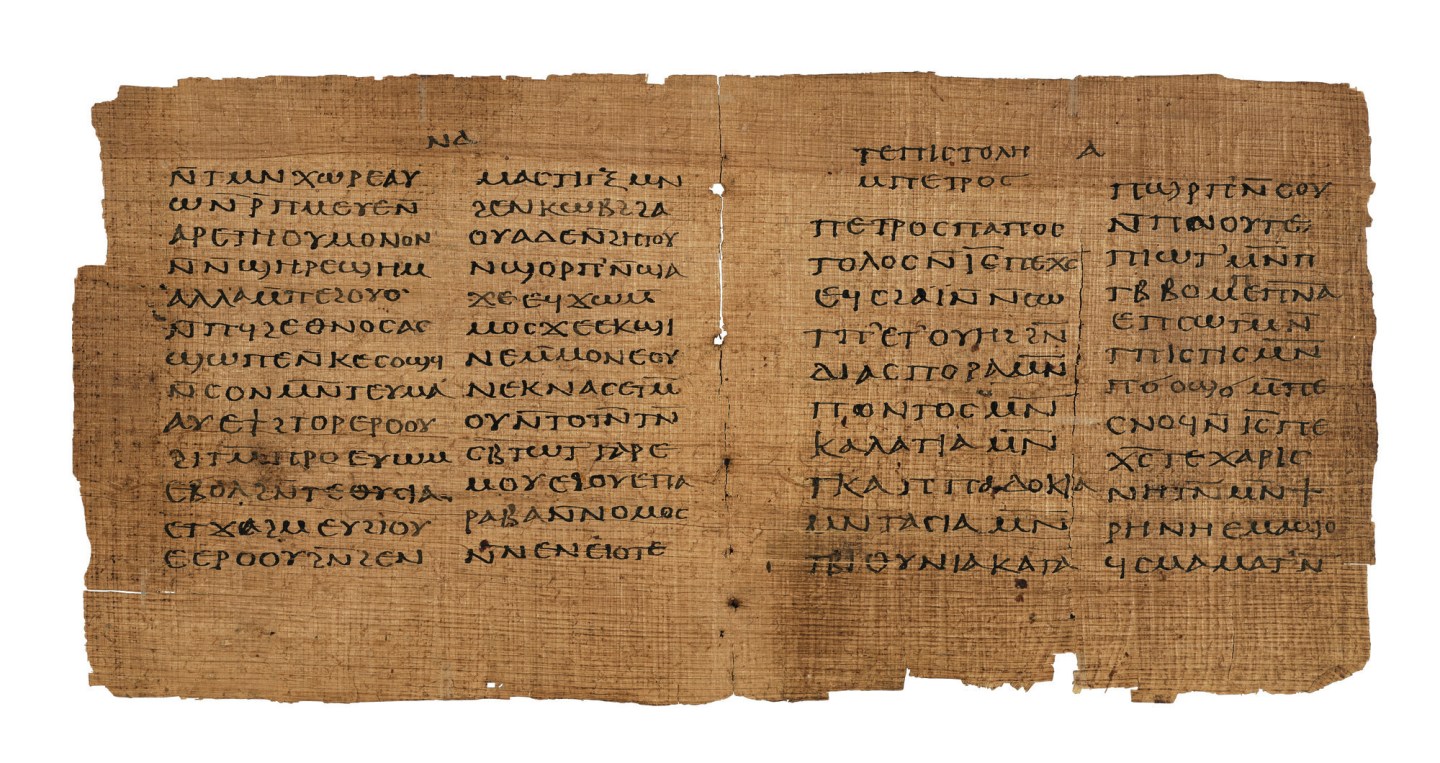 ⲛⲁ
ⲛ̄ⲧⲙⲛⲭⲱⲣⲉⲁⲩ
ⲱⲛⲣ̄ⲡⲙⲉⲩⲉⲛ̄
ⲁⲣⲉⲧⲏⲟⲩⲙⲟⲛⲟⲛ
ⲛ̄ⲛϣⲏⲣⲉϣⲏⲙ
ⲁⲗⲗⲁⲙ̄ⲡⲉϩⲟⲩⲟ
ⲙ̄ⲡϥϩⲉⲑⲛⲟⲥⲁⲥ
ϣⲱⲡⲉⲛ̄ⲕⲉⲥⲟϣϥ
ⲛ̄ⲥⲟⲛⲙⲛ̄ⲧⲉⲩⲙⲁ
ⲁⲩⲉϯϩⲧⲟⲣⲉⲣⲟⲟⲩ
ϩⲓⲧⲙ̄ⲡⲣⲟⲉⲩⲱⲙ
ⲉⲃⲟⲗϩⲛ̄ⲧⲉⲑⲩⲥⲓⲁ
ⲉⲧϫⲁϩⲙⲉⲩϩⲓⲟⲩ
ⲉⲉⲣⲟⲟⲩϩⲛϩⲉⲛ
ⲙⲁⲥⲧⲓⲅⲝ ⲙⲛ
ϩⲉⲛⲕⲱⲃϩϩⲁ
ⲟⲩⲁⲇⲉⲛ̄ϩⲏⲧⲟⲩ
ⲛϣⲟⲣⲡ'ⲛ̄ϣⲁ
ϫⲉⲉϥϫⲱⲙ
ⲙⲟⲥϫⲉⲉⲕϣⲓ
ⲛⲉⲙ̄ⲙⲟⲛⲉⲟⲩ
ⲛⲉⲕⲛⲁⲥⲉⲧⲙ̄
ⲟⲩⲛ̄ⲧⲟⲧⲛ̄ⲧⲛ̄
ⲥⲃⲧⲱⲧ ⲅⲁⲣⲉ
ⲙⲟⲩⲉϩⲟⲩⲉⲡⲁ
ⲣⲁⲃⲁⲛ̄ⲛⲟⲙⲟⲥ
ⲛ̄ⲛⲉⲛⲉⲓⲟⲧⲉ
ⲧⲉⲡⲓⲥⲧⲟⲗⲏ ⲁ
ⲙⲡⲉⲧⲣⲟⲥ
ⲡⲉⲧⲣⲟⲥⲡⲁⲡⲟⲥ
ⲧⲟⲗⲟⲥⲛ̄ⲓ̄ⲥ̄ⲡⲉⲭ̄ⲥ̄
ⲉϥⲥϩⲁⲓⲛ̄ⲛⲥⲱ
ⲧⲡ'ⲉⲧ'ⲟⲩⲏϩϩⲛ
ⲇⲓⲁⲥⲡⲟⲣⲁⲙ̄ⲛ̄
ⲡⲟⲛⲧⲟⲥⲙ̄ⲛ̄
ⲕⲁⲗⲁⲧⲓⲁ ⲙ̄ⲛ̄
ⲧⲕⲁⲡⲡⲁⲇⲟⲕⲓⲁ
ⲙⲛⲧⲁⲥⲓⲁ ⲙ̄ⲛ̄
ⲧⲃⲓⲑⲩⲛⲓⲁⲕⲁⲧⲁ
ⲡϣⲣⲡⲛ̄ⲥⲟⲩ
ⲛ̄ⲡⲛⲟⲩⲧⲉ
ⲡⲓⲱⲧ'ⲙ̄ⲛ̄ⲡ
ⲧⲃⲃⲟⲙ̄ⲉⲡ̄ⲛ̄ⲁ̄
ⲉⲡⲥⲱⲧⲙⲛ̄
ⲧⲡⲓⲥⲧⲓⲥⲙ̄ⲛ̄
ⲡϭⲟϣϭ ⲙ̄ⲡⲉ
ⲥⲛⲟϥⲛ̄ⲓ̄ⲥ̄ⲡⲉ
ⲭ̄ⲥ̄ⲧⲉⲭⲁⲣⲓⲥ
ⲛⲏⲧⲛ̄ⲙⲛ̄ϯ
ⲣⲏⲛⲏⲉⲙⲁϣⲟ
ϥⲥⲙⲁⲙⲁⲧ'ⲛ